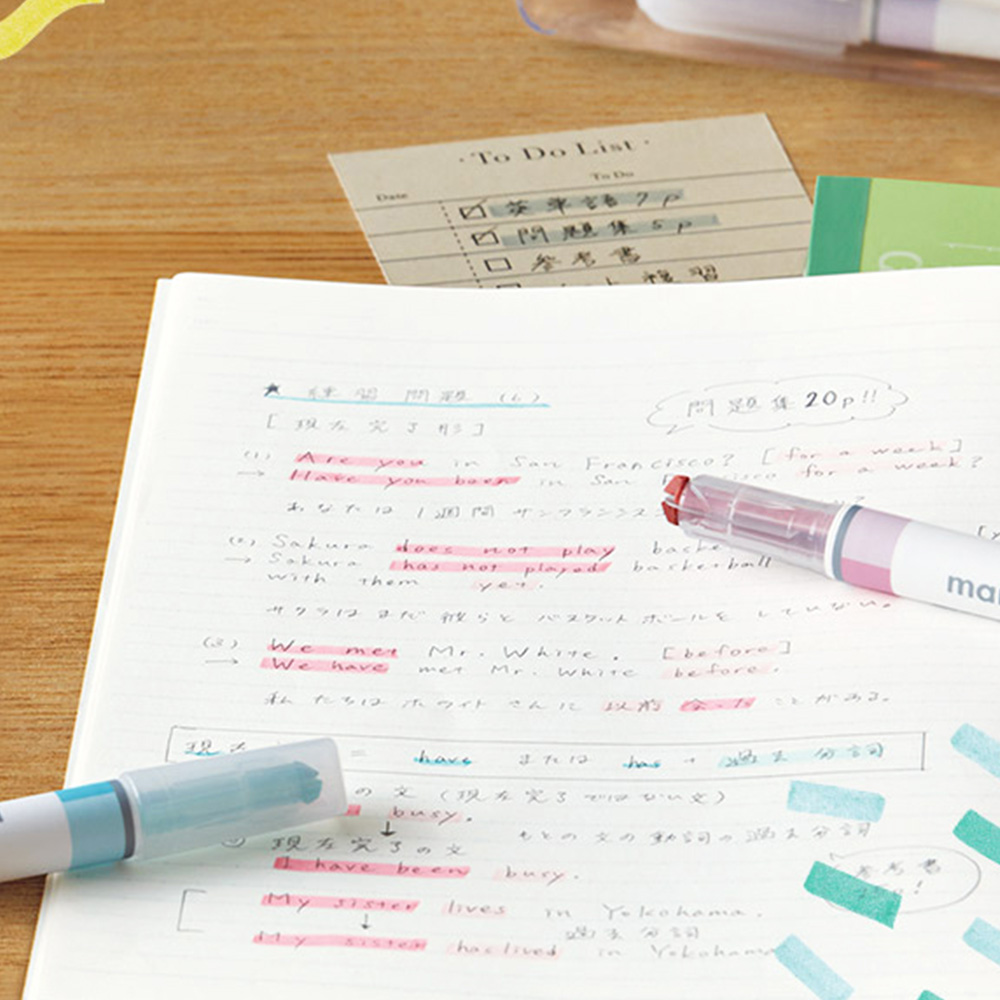 To Do List
Date To Do
英単語 7p
問題集 5p
参考書
練習
★ 練習問題 (6)
問題集 20p!!
[現在完了形]
(1) Are you in San Francisco? [for a week]
→ Have you been in San for a week?
あなたは1週間サンフランシス
(2) Sakura does not play
→ Sakura has not played basketball
with them yet.
サクラはまだ彼らとバスケットボールをしていない。
(3) We met Mr. White. [before]
→ We have met Mr. White before.
私たちはホワイトさんに以前会ったことがある。
現在 = have または has + 過去分詞
の文 (現在完了ではない文)
busy.
もとの文の動詞の過去分詞
現在完了の文
I have been busy.
My sister lives in Yokohama.
過去分詞
My sister has lived in Yokohama
参考書
mar